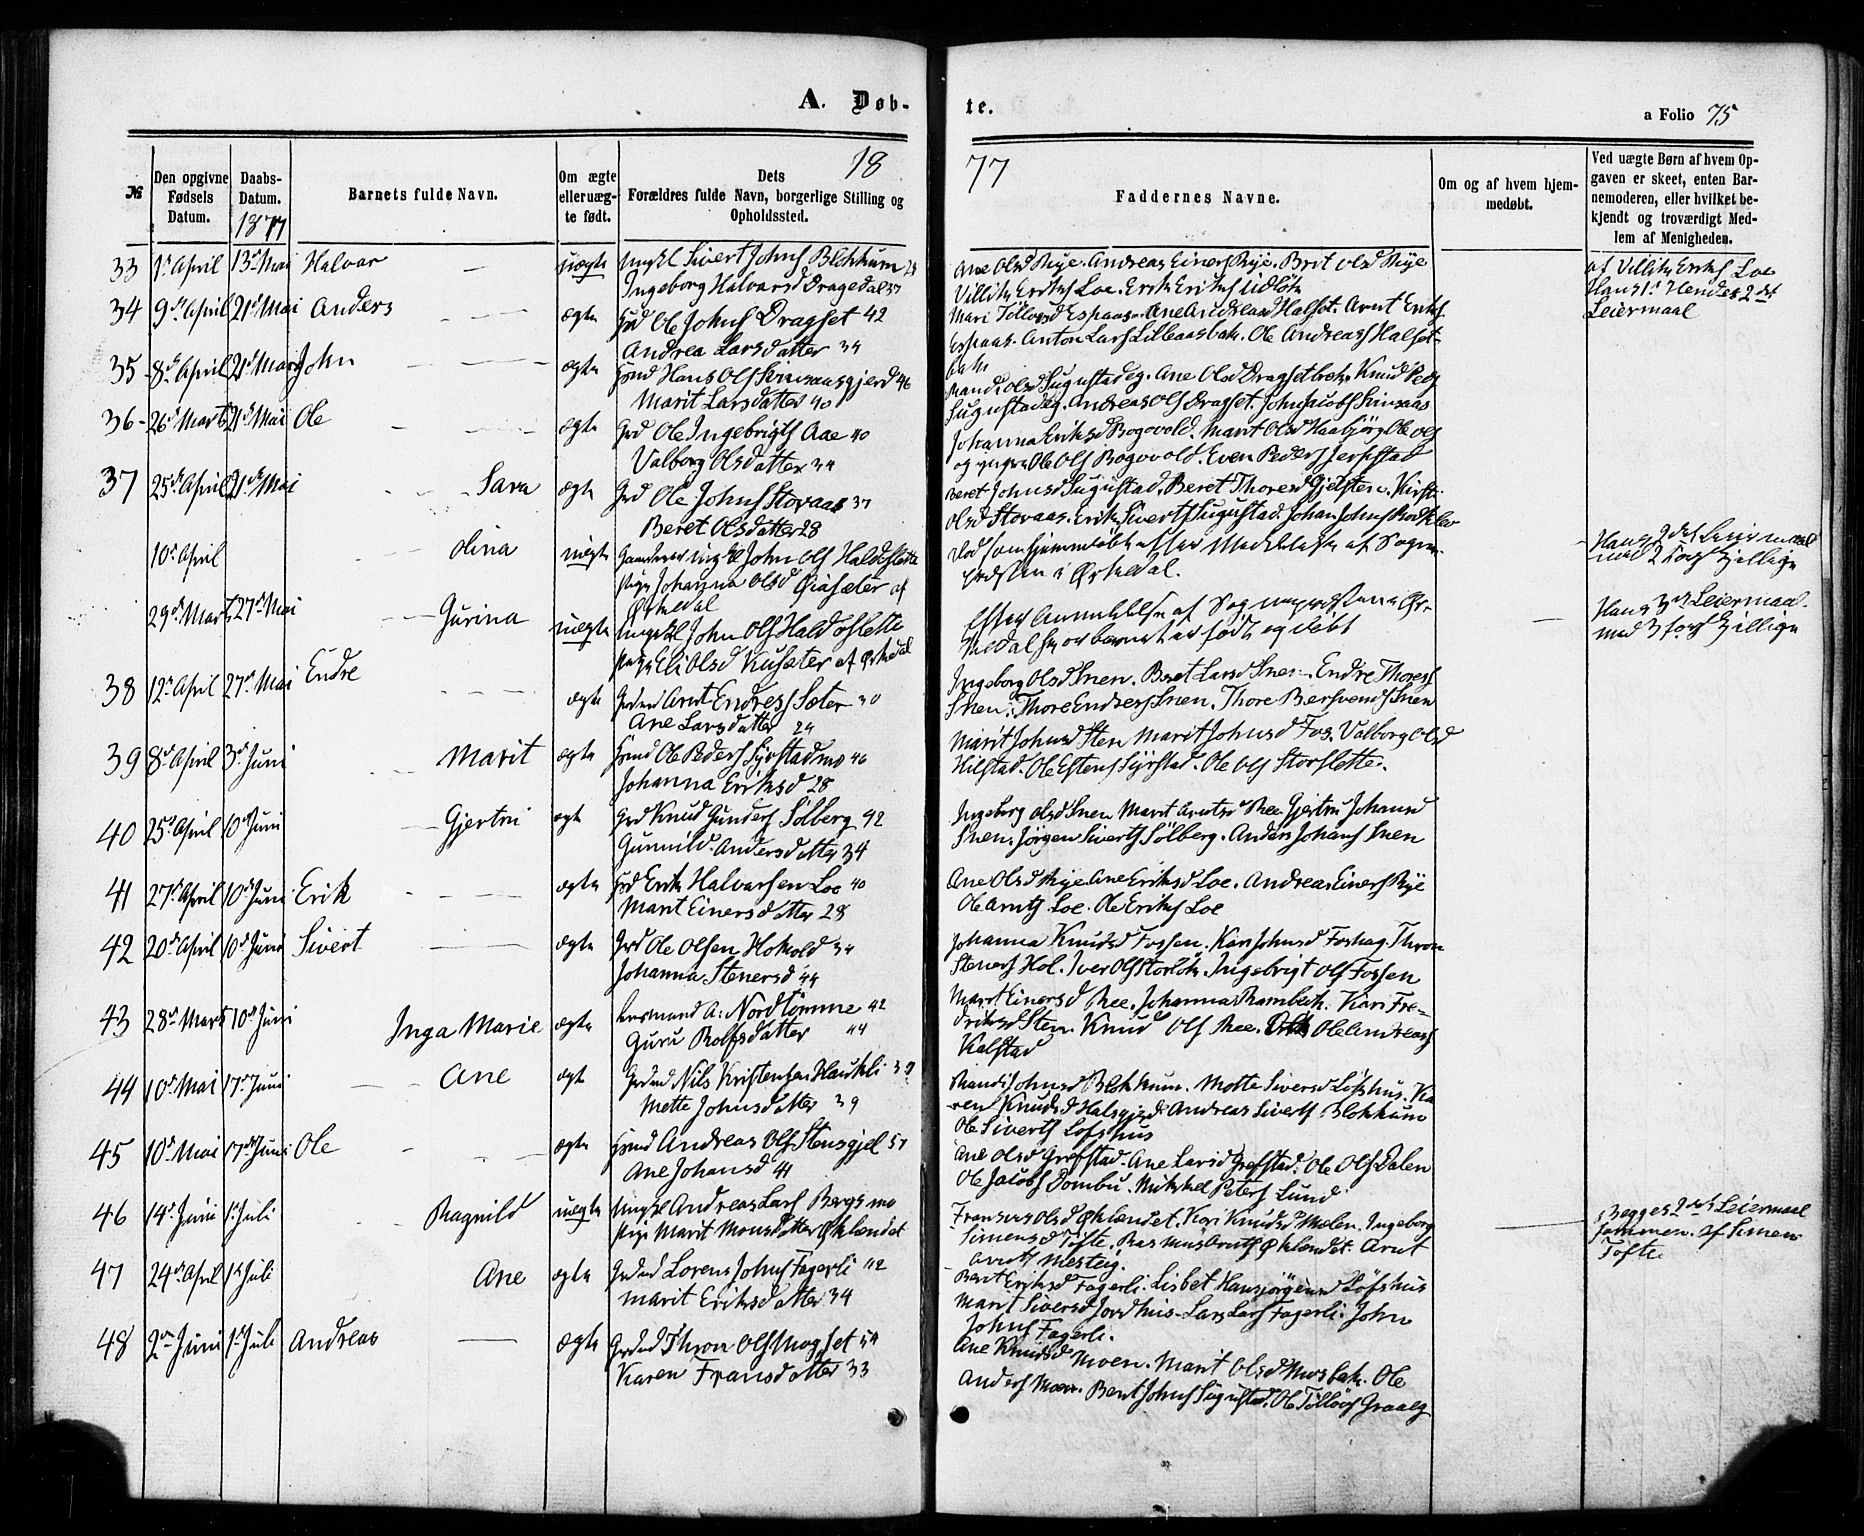 A. Døb-
te.
a Folio 75
18
77
№
Den opgivne
Fødsels
Datum.
Daabs-
Datum.
1877
Barnets fulde Navn.
Om ægte
eller uæg-
te født.
Dets
Forældres fulde Navn, borgerlige Stilling og
Opholdssted.
Faddernes Navne.
Om og af hvem hjem-
medøbt.
Ved uægte Børn af hvem Op-
gaven er skeet, enten Bar-
nemoderen, eller hvilket be-
kjendt og troværdigt Med-
lem af Menigheden.
33 1st April 13d Mai Halvar uægte Ungkl Sivert Johns Blokkum 28
Ingeborg Halvarsd Dragedal 37
Ane Olsd Rye. Andreas Einers Rye. Brit Olsd Rye
Erik Eriks
af Eriks Loe
Hans 1st Hendes 2det
Leiermaal
34 9de April 21d Mai Anders ægte Ole Johns Dragset 42
Andrea Larsdatter 34
Mari Espaas. Ane Andreasd Halset. Arnt Eriks
Espaas. Anton Lars Lilleaasbak. Ole Andreass Halset-
bak
35 8de April 21d Mai John ægte Hans Ols Svinsaasgjerd 46
Marit Larsdatter 40
Sugustadeg. Ane Olsd Dragsetbak. Knud Peds
Sugustadeg. Andreas Ols Dragset. John Jacobs Svinsaas
36 26d Marts 21d Mai Ole ægte Grd Ole Ingebrigts Aae 40
Valborg Olsdatter 34
Johanna Eriksd Bogovold. Marit Olsd Ole Ols
og yngre Ole Ols Bogovold. Even Peders
37 25de April 21de Mai Sara ægte Grd Ole Johns Stovaas 37
Beret Olsdatter 28
Beret Johnsd Sugustad. Beret Thoresd Gjelsten. Kirsti
Olsd Stovaas. Erik Siverts Sugustad. Johan Johns
10d April Olina uægte ungkl John Ols Haldoslette
pige Johanna Olsd Øiasæter af
Ørkedal
Død som hjemmedøbt efter Meddelelse af Sogne-
præsten i Ørkedal.
Hans 2det Leiermaal
med 2 forskjellige
29de Marts 27d Mai Gurina uægte Ungkl John Ols Haldoslette
pige Eli Olsd Kusæter af Ørkedal
Efter Anmeldelse af Sognepræsten i Ør-
kedal hvor barnet er født og døbt
Hans 3de Leiermaal
med 3 forskjellige
38 12te April 27de Mai Endre ægte Arnt Endress Sæter 30
Ane Larsdatter 24
Ingeborg Olsd Snen. Beret Larsd Snen. Endre Thoress
Snen. Thore Endress Snen. Thore Bersvends Snen
39 8de April 3d Juni Marit ægte Ole Peders Syrstadmo 46
Johanna Eriksd 28
Marit Johnsd Sten Marit Johnsd Fos. Valborg Olsd
Hilstad. Ole Estens Syrstad. Ole Ols Storslette.
40 25d April 10d Juni Gjertru ægte Grd Knud Gunders Sølberg 42
Gunnild Andersdatter 34
Ingeborg Olsd Snen Marit Arntsd Ree. Gjertru Johansd
Snen. Jørgen Siverts Sølberg. Anders Johans Snen
41 27d April 10d Juni Erik ægte Erik Halvarsen Loe 40
Marit Einersdatter 28
Ane Olsd Rye. Ane Eriksd Loe. Andreas Einers Rye
Ole Arnts Loe. Ole Eriks Loe
42 20d April 10d Juni Sivert ægte Grd Ole Olsen Hokold 34
Johanna Stenersd 44
Johanna Knudsd Fossen. Kari Johnsd Foshag. Thron
Steners Hol. Iver Ols Ingebrigt Ols Fossen
43 28de Marts 10d Juni Inga Marie ægte Lensmand A. Nordtømme 42
Guru Rolfsdatter 44
Marit Einersd Ree. Johanna Rambech. Kari Fre-
driksd Sten. Knud Ols Ree. Ole Andreass
Kalstad
44 10d Mai 17d Juni Ane ægte Nils Kristensen Haukli 39
Mette Johnsdatter 39
Randi Johnsd Blokkum. Mette Siversd Løfshus. Ka-
ren Knudsd Halsgjerd. Andreas Siverts Blokkum
Ole Siverts Lofshus
45 10d Mai 17de Juni Ole ægte Andreas Ols Stensgjel 51
Ane Johansd 41
Ane Olsd Grefstad. Ane Larsd Grefstad. Ole Ols Dalen
Ole Jacobs Dombu. Mikkel Peters Lund
46 14d Juni 1st Juli Ragnild uægte Ungkl Andreas Lars Bergsmo
pige Marit Monsdatter Øklandet
Olsd Øklandet. Kari Knudsd Melen. Ingeborg
Simensd Tøfte. Rasmus Arnts Øklandet. Arnt
Arnts
Begges 2det Leiermaal
sammen. af Simen
Tøfte
47 24de April 1st Juli Ane ægte Lorens Johns Fagerli 42
Marit Eriksdatter 34
Berit Eriksd Fagerli. Lisbet Hansjørgensd Løfshus
Marit Siversd Jordhus. Lars Lars Fagerli. John
Johns Fagerli.
48 2den Juni 1st Juli Andreas ægte Thron Ols Mogset 54
Karen Fransdatter 33
Ane Knudsd Moen. Marit Olsd Mosbak. Ole
Anders Moen. Bent Johns Sugustad. Ole